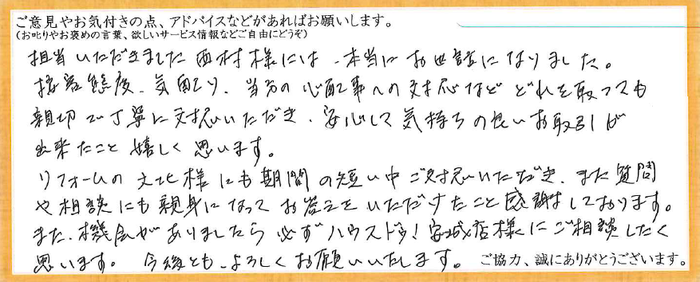 ご意見やお気付きの点、アドバイスなどがあればお願いします。
(お叱りやお褒めの言葉、欲しいサービス情報などご自由にどうぞ)
担当いただきました西村様には、本当にお世話になりました。
接客態度、気配り、当方の心配事への対応など どれを取っても
親切で丁寧に対応いただき、安心して気持ちの良いお取引が
出来たこと嬉しく思います。
リフォームの 様にも期間の短い中ご対応いただき、また質問
や相談にも親身になってお答えをいただけたこと感謝しております。
また、機会がありましたら必ずハウスドゥ!安城店様にご相談したく
思います。 今後とも、よろしくお願いいたします。
ご協力、誠にありがとうございます。